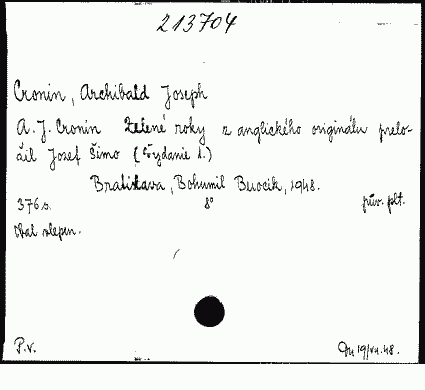 213704
Cronin, Archibald Joseph
A. J. Cronin Zelené roky z anglického originálu prelo-
žil Jozef Šimo (Vydanie 1.)
Bratislava, Bohumil Buocik, 1948.
376 s. 8° pův. plt.
Obal slepen.
P.v. 19/VII.48.